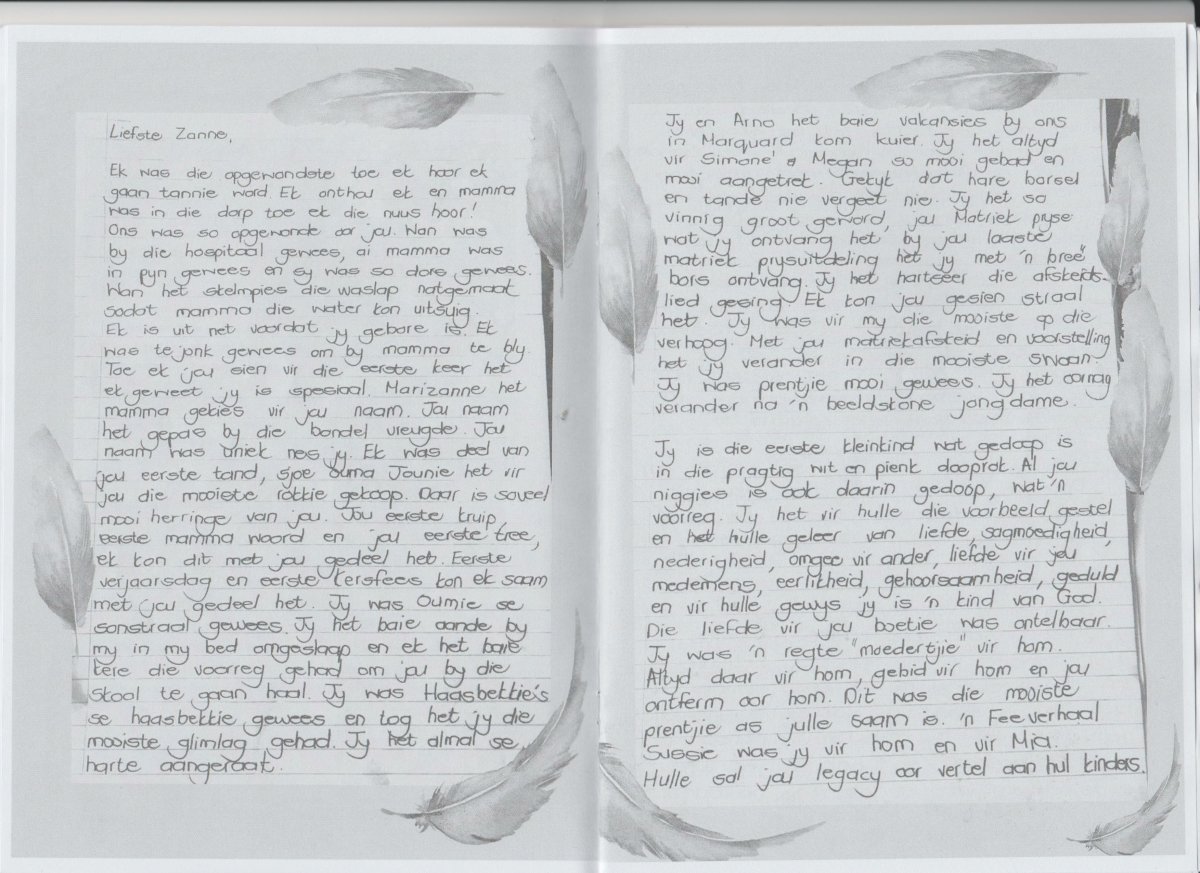 Liefste Zanne,
Ek was die opgewondste toe ek hoor ek
gaan tannie word. Ek onthou ek en mamma
was in die dorp toe ek die nuus hoor!
Ons was so opgewonde oor jou. Nan was
by die hospitaal gewees, ai mamma was
in pyn gewees en sy was so dors gewees.
Nan het stelmpies die waslap natgemaak
sodat mamma die water kon uitsuig.
Ek is uit net voordat jy gebore is. Ek
was te jonk gewees om by mamma te bly.
Toe ek jou sien vir die eerste keer het
ek geweet jy is spesiaal. Marizanne het
mamma gekies vir jou naam. Jou naam
het gepas by die bondel vreugde. Jou
naam was uniek nes jy. Ek was deel van
jou eerste tand, sjoe ouma Jounie het vir
jou die mooiste rokkie gekoop. Daar is soveel
mooi herringe van jou. Jou eerste kruip,
eerste mamma woord en jou eerste tree,
ek kon dit met jou gedeel het. Eerste
verjaarsdag en eerste kersfees kon ek saam
met jou gedeel het. Jy was Oumie se
sonstraal gewees. Jy het baie aande by
my in my bed omgeslaap en ek het baie
kere die voorreg gehad om jou by die
skool te gaan haal. Jy was Haasbekkie's
se haasbekkie gewees en tog het jy die
mooiste glimlag gehad. Jy het almal se
harte aangeraak.
Jy en Arno het baie vakansies by ons
in Marquard kom kuier. Jy het altyd
vir Simone' & Megan so mooi gebad en
mooi aangetrek. Gekyk dat hare borsel
en tande nie vergeet nie. Jy het so
vinnig groot geword, jou Matriek pryse
wat jy ontvang het by jou laaste
matriek prysuitdeling het jy met 'n breë
bors ontvang. Jy het hartseer die afskeids-
lied gesing. Ek kon jou gesien straal
het. Jy was vir my die mooiste op die
verhoog. Met jou matriekafskeid en voorstelling
het jy verander in die mooiste swaan.
Jy was prentjie mooi gewees. Jy het oornag
verander na 'n beeldskone jong dame.
Jy is die eerste kleinkind wat gedoop is
in die pragtig wit en pienk dooprok. Al jou
niggies is ook daarin gedoop, wat 'n
voorreg. Jy het vir hulle die voorbeeld gestel
en het hulle geleer van liefde, sagmoedigheid,
nederigheid, omgee vir ander, liefde vir jou
medemens, eerlikheid, gehoorsaamheid, geduld
en vir hulle gewys jy is 'n kind van God.
Die liefde vir jou boetie was ontelbaar.
Jy was 'n regte "moedertjie" vir hom.
Altyd daar vir hom, gebid vir hom en jou
ontferm oor hom. Dit was die mooiste
prentjie as julle saam is. 'n Feeverhaal
Sussie was jy vir hom en vir Mia.
Hulle sal jou legacy oor vertel aan hul kinders.